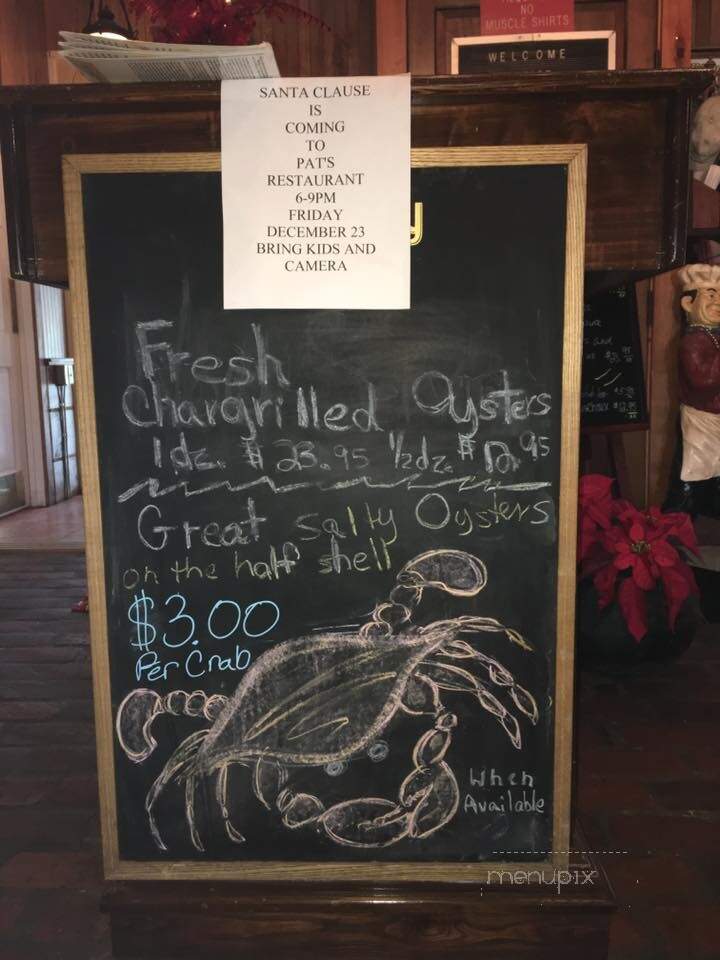 NO
MUSCLE SHIRTS
WELCOME
SANTA CLAUSE
IS
COMING
TO
PAT'S
RESTAURANT
6-9PM
FRIDAY
DECEMBER 23
BRING KIDS AND
CAMERA
y
Fresh
Chargrilled Oysters
1 dz. $23.95 1/2 dz. $12.95
Great Salty Oysters
on the half shell
$3.00
Per Crab
When
Available
menupix